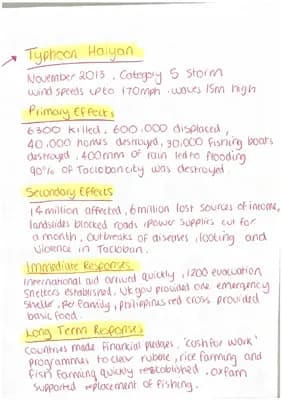 Typhoon Haiyan
November 2013. Category 5 storm
wind speeds up to 170mph. waves 15m high
Primary Effects
6300 killed, 600,000 displaced,
40,000 homes destroyed, 30,000 fishing boats
destroyed, 400mm of rain led to flooding
90% of Tacloban city was destroyed.
Secondary Effects
14 million affected, 6 million lost sources of income,
landslides blocked roads, Power supplies cut for
a month, outbreaks of diseases, looting and
violence in Tacloban.
Immediate Responses
International aid arrived quickly, 1200 evacuation
shelters established. UK gov provided one emergency
shelter per family, philippines red cross provided
basic food.
Long Term Responses
Countries made financial pledges, 'cash for work'
programmes to clear rubble, rice farming and
fish farming quickly restablished. oxfam
supported replacement of fishing.